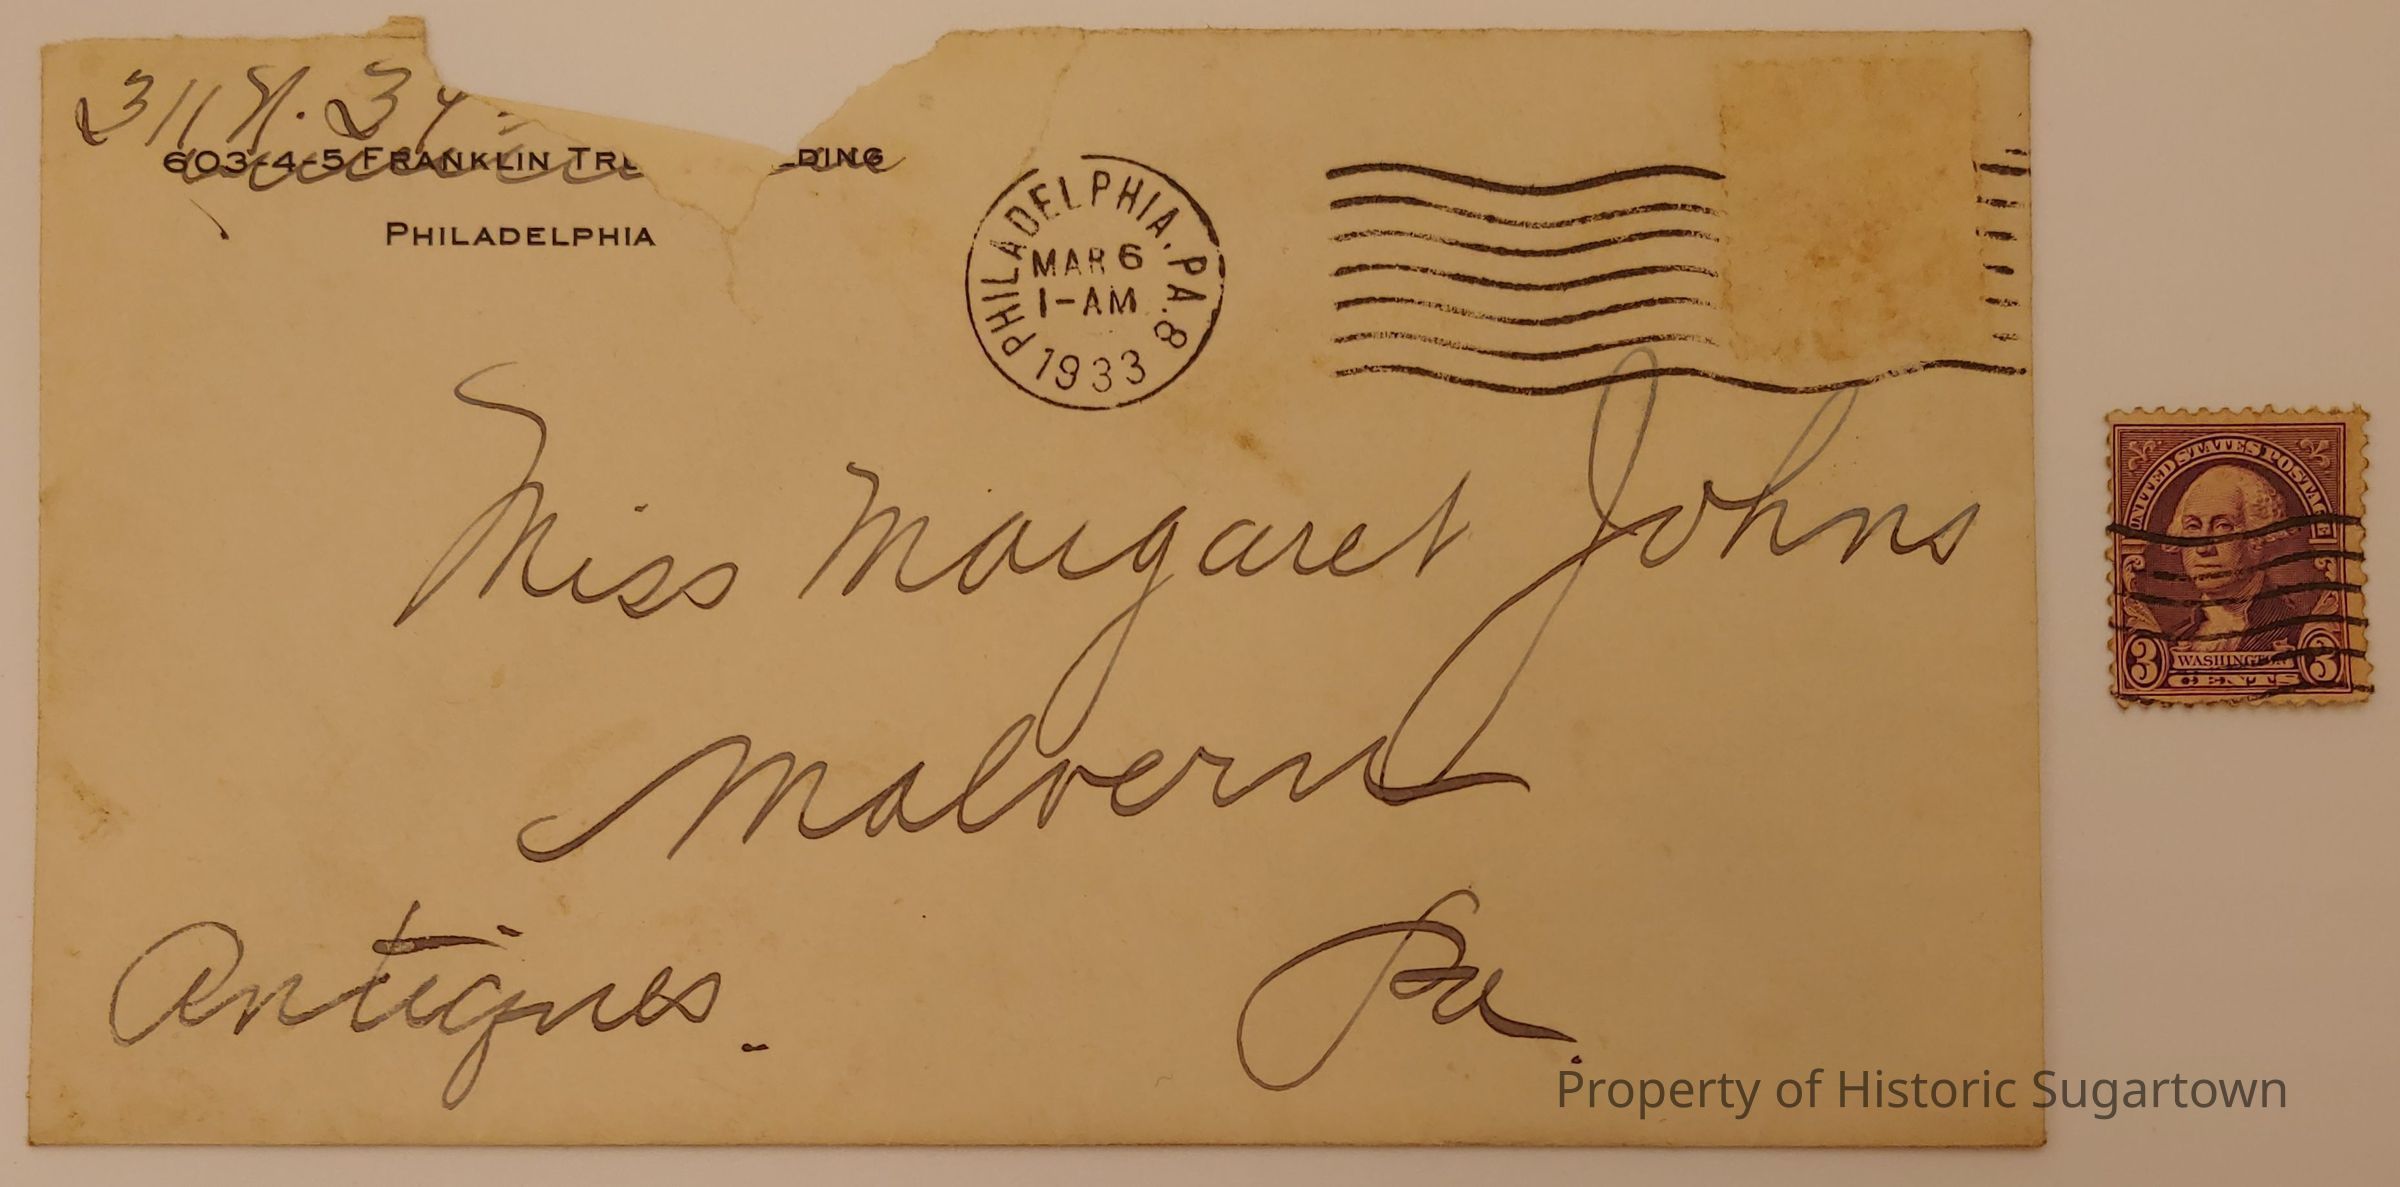 311 N. 34
603-4-5 FRANKLIN TRU DING
PHILADELPHIA
PHILADELPHIA, PA. 8
MAR 6
1-AM
1933
Miss Margaret Johns
Malvern
Antiques.
Pa.
UNITED STATES POSTAGE
3 WASHINGTON 3
CENTS
Property of Historic Sugartown